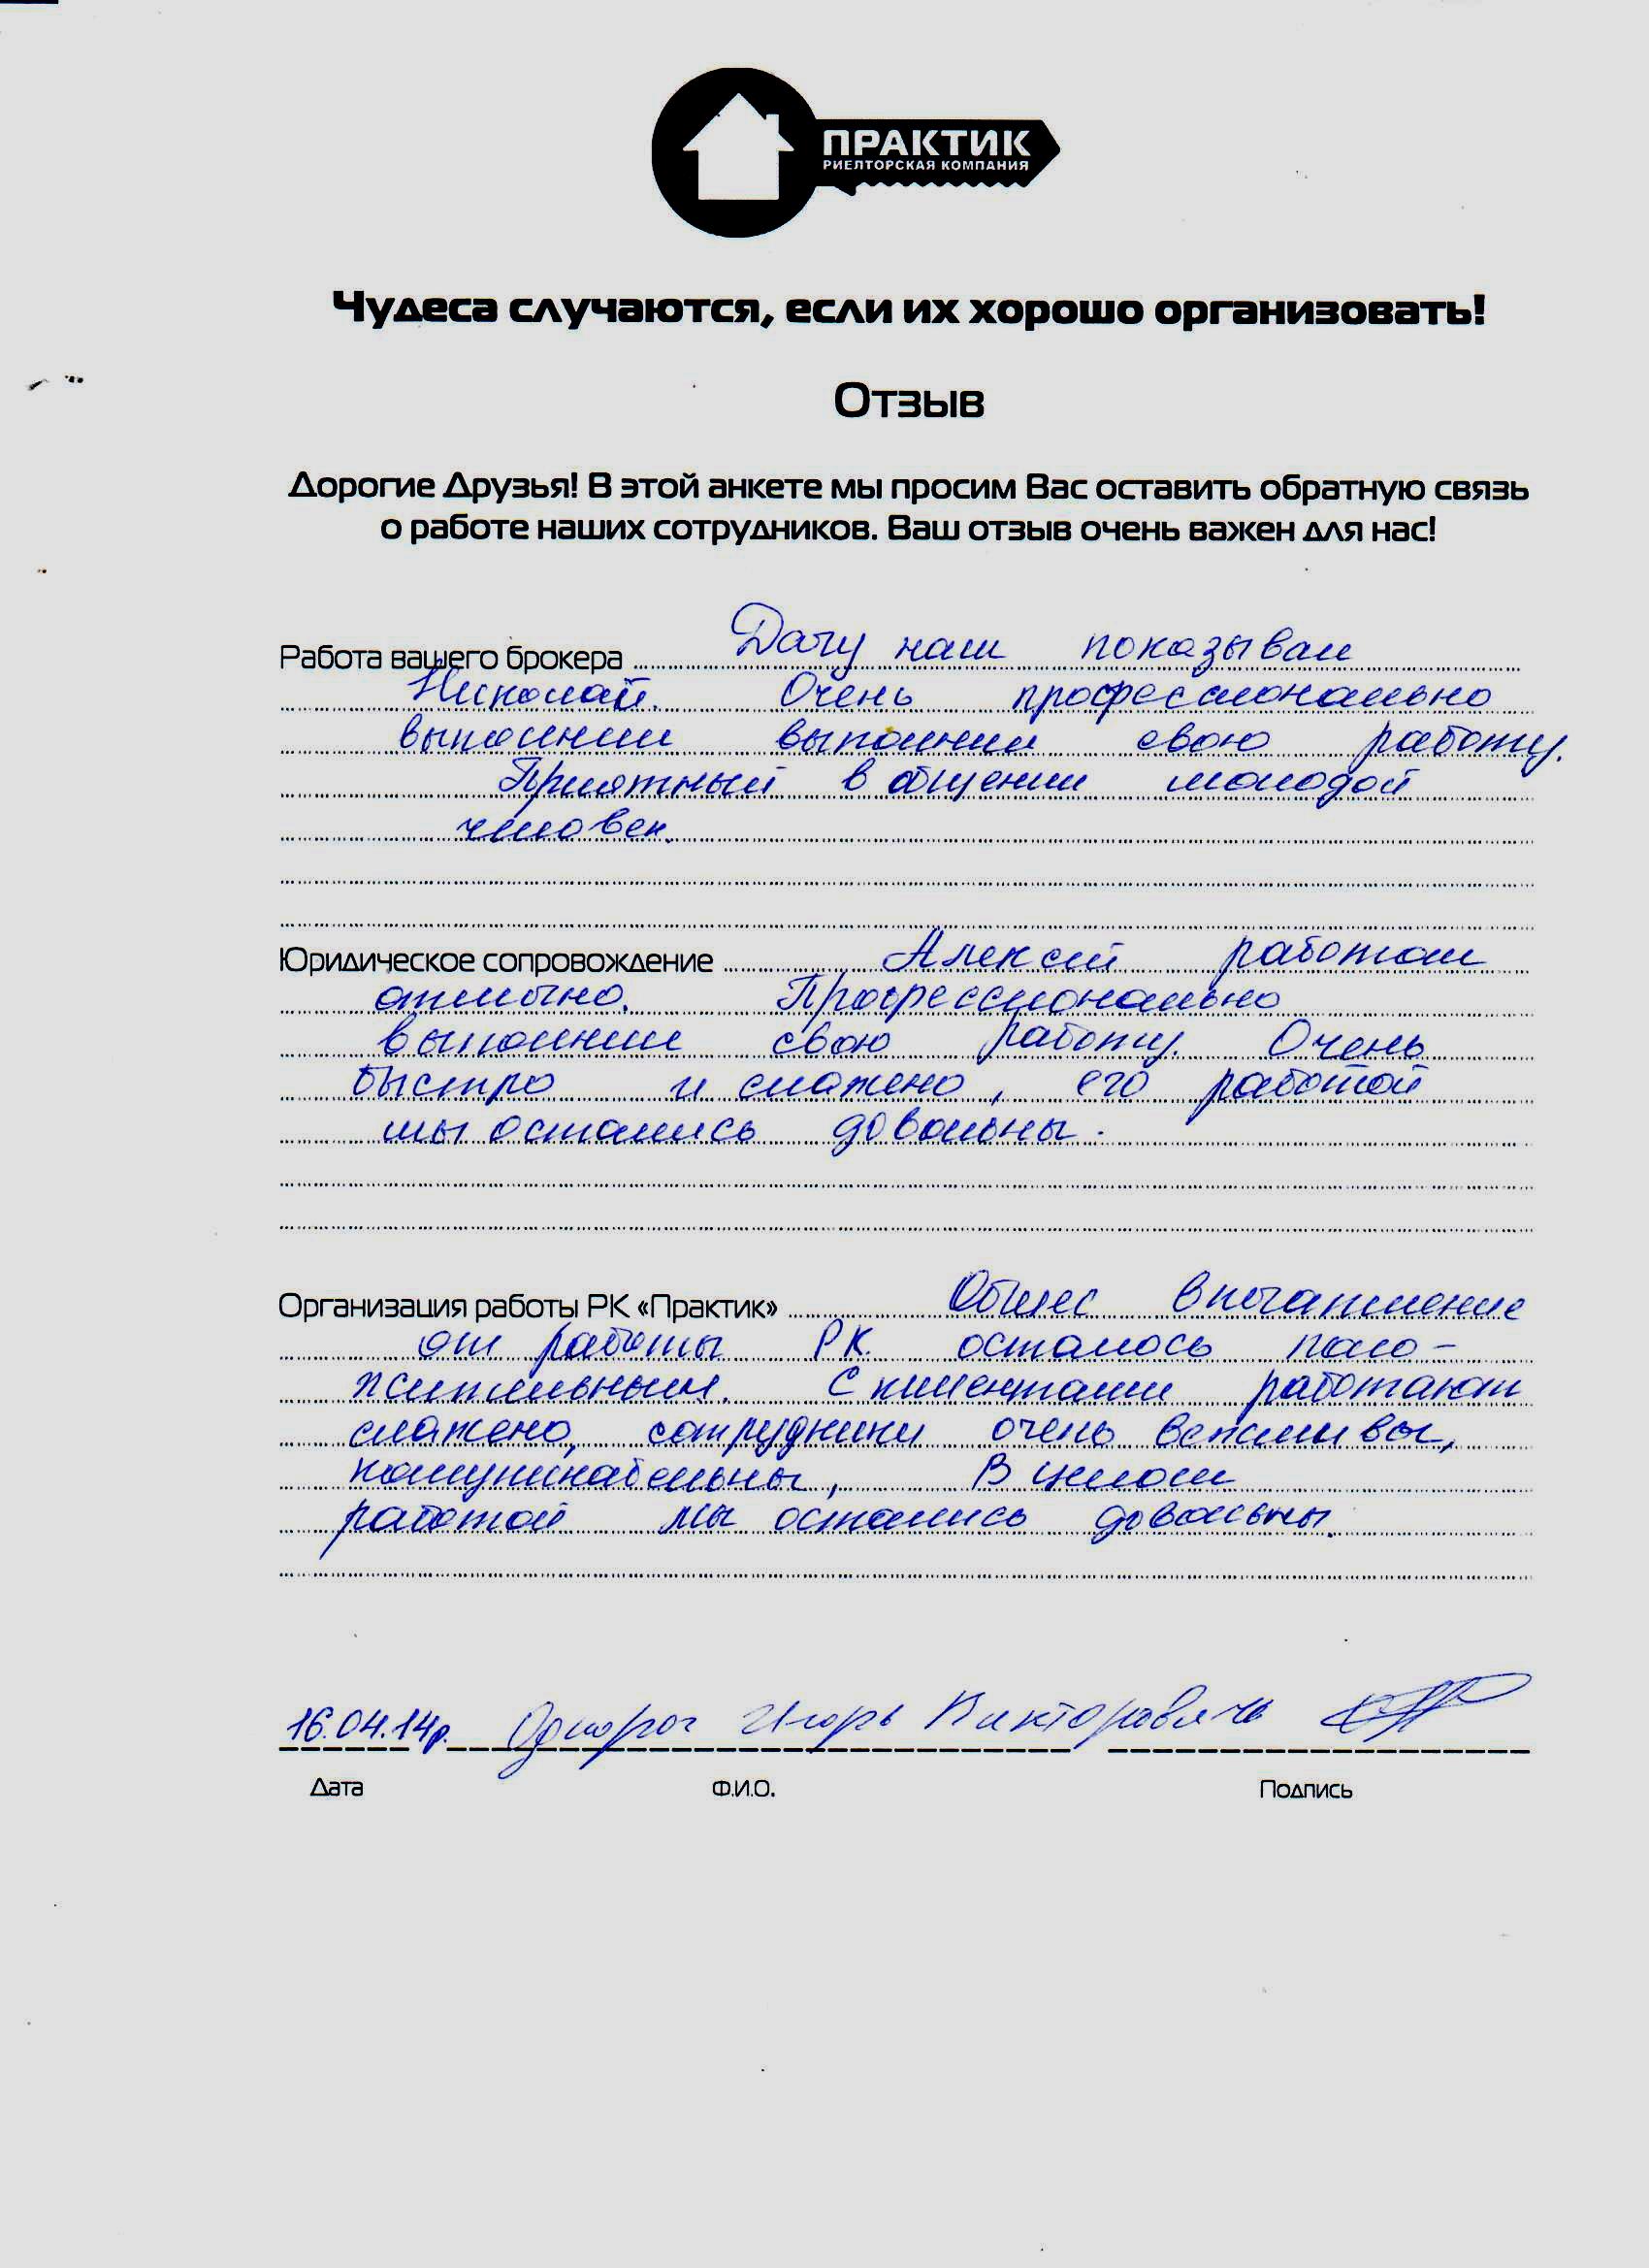 ПРАКТИК
РИЕЛТОРСКАЯ КОМПАНИЯ
Чудеса случаются, если их хорошо организовать!
Отзыв
Дорогие Друзья! В этой анкете мы просим Вас оставить обратную связь
о работе наших сотрудников. Ваш отзыв очень важен для нас!
Работа вашего брокера Дачу нам показывал
Николай. Очень профессионально
выполнил выполнил свою работу.
Приятный в общении молодой
человек.
Юридическое сопровождение Алексей работал
отлично. Профессионально
выполнил свою работу. Очень
быстро и слажено, его работой
мы остались довольны.
Организация работы РК «Практик» Общее впечатление
от работы РК. осталось поло-
жительным. С клиентами работают
слажено, сотрудники очень вежливы,
В целом
работой мы остались довольны.
16.04.14г. Однорог Игорь Викторович
Дата Ф.И.О. Подпись